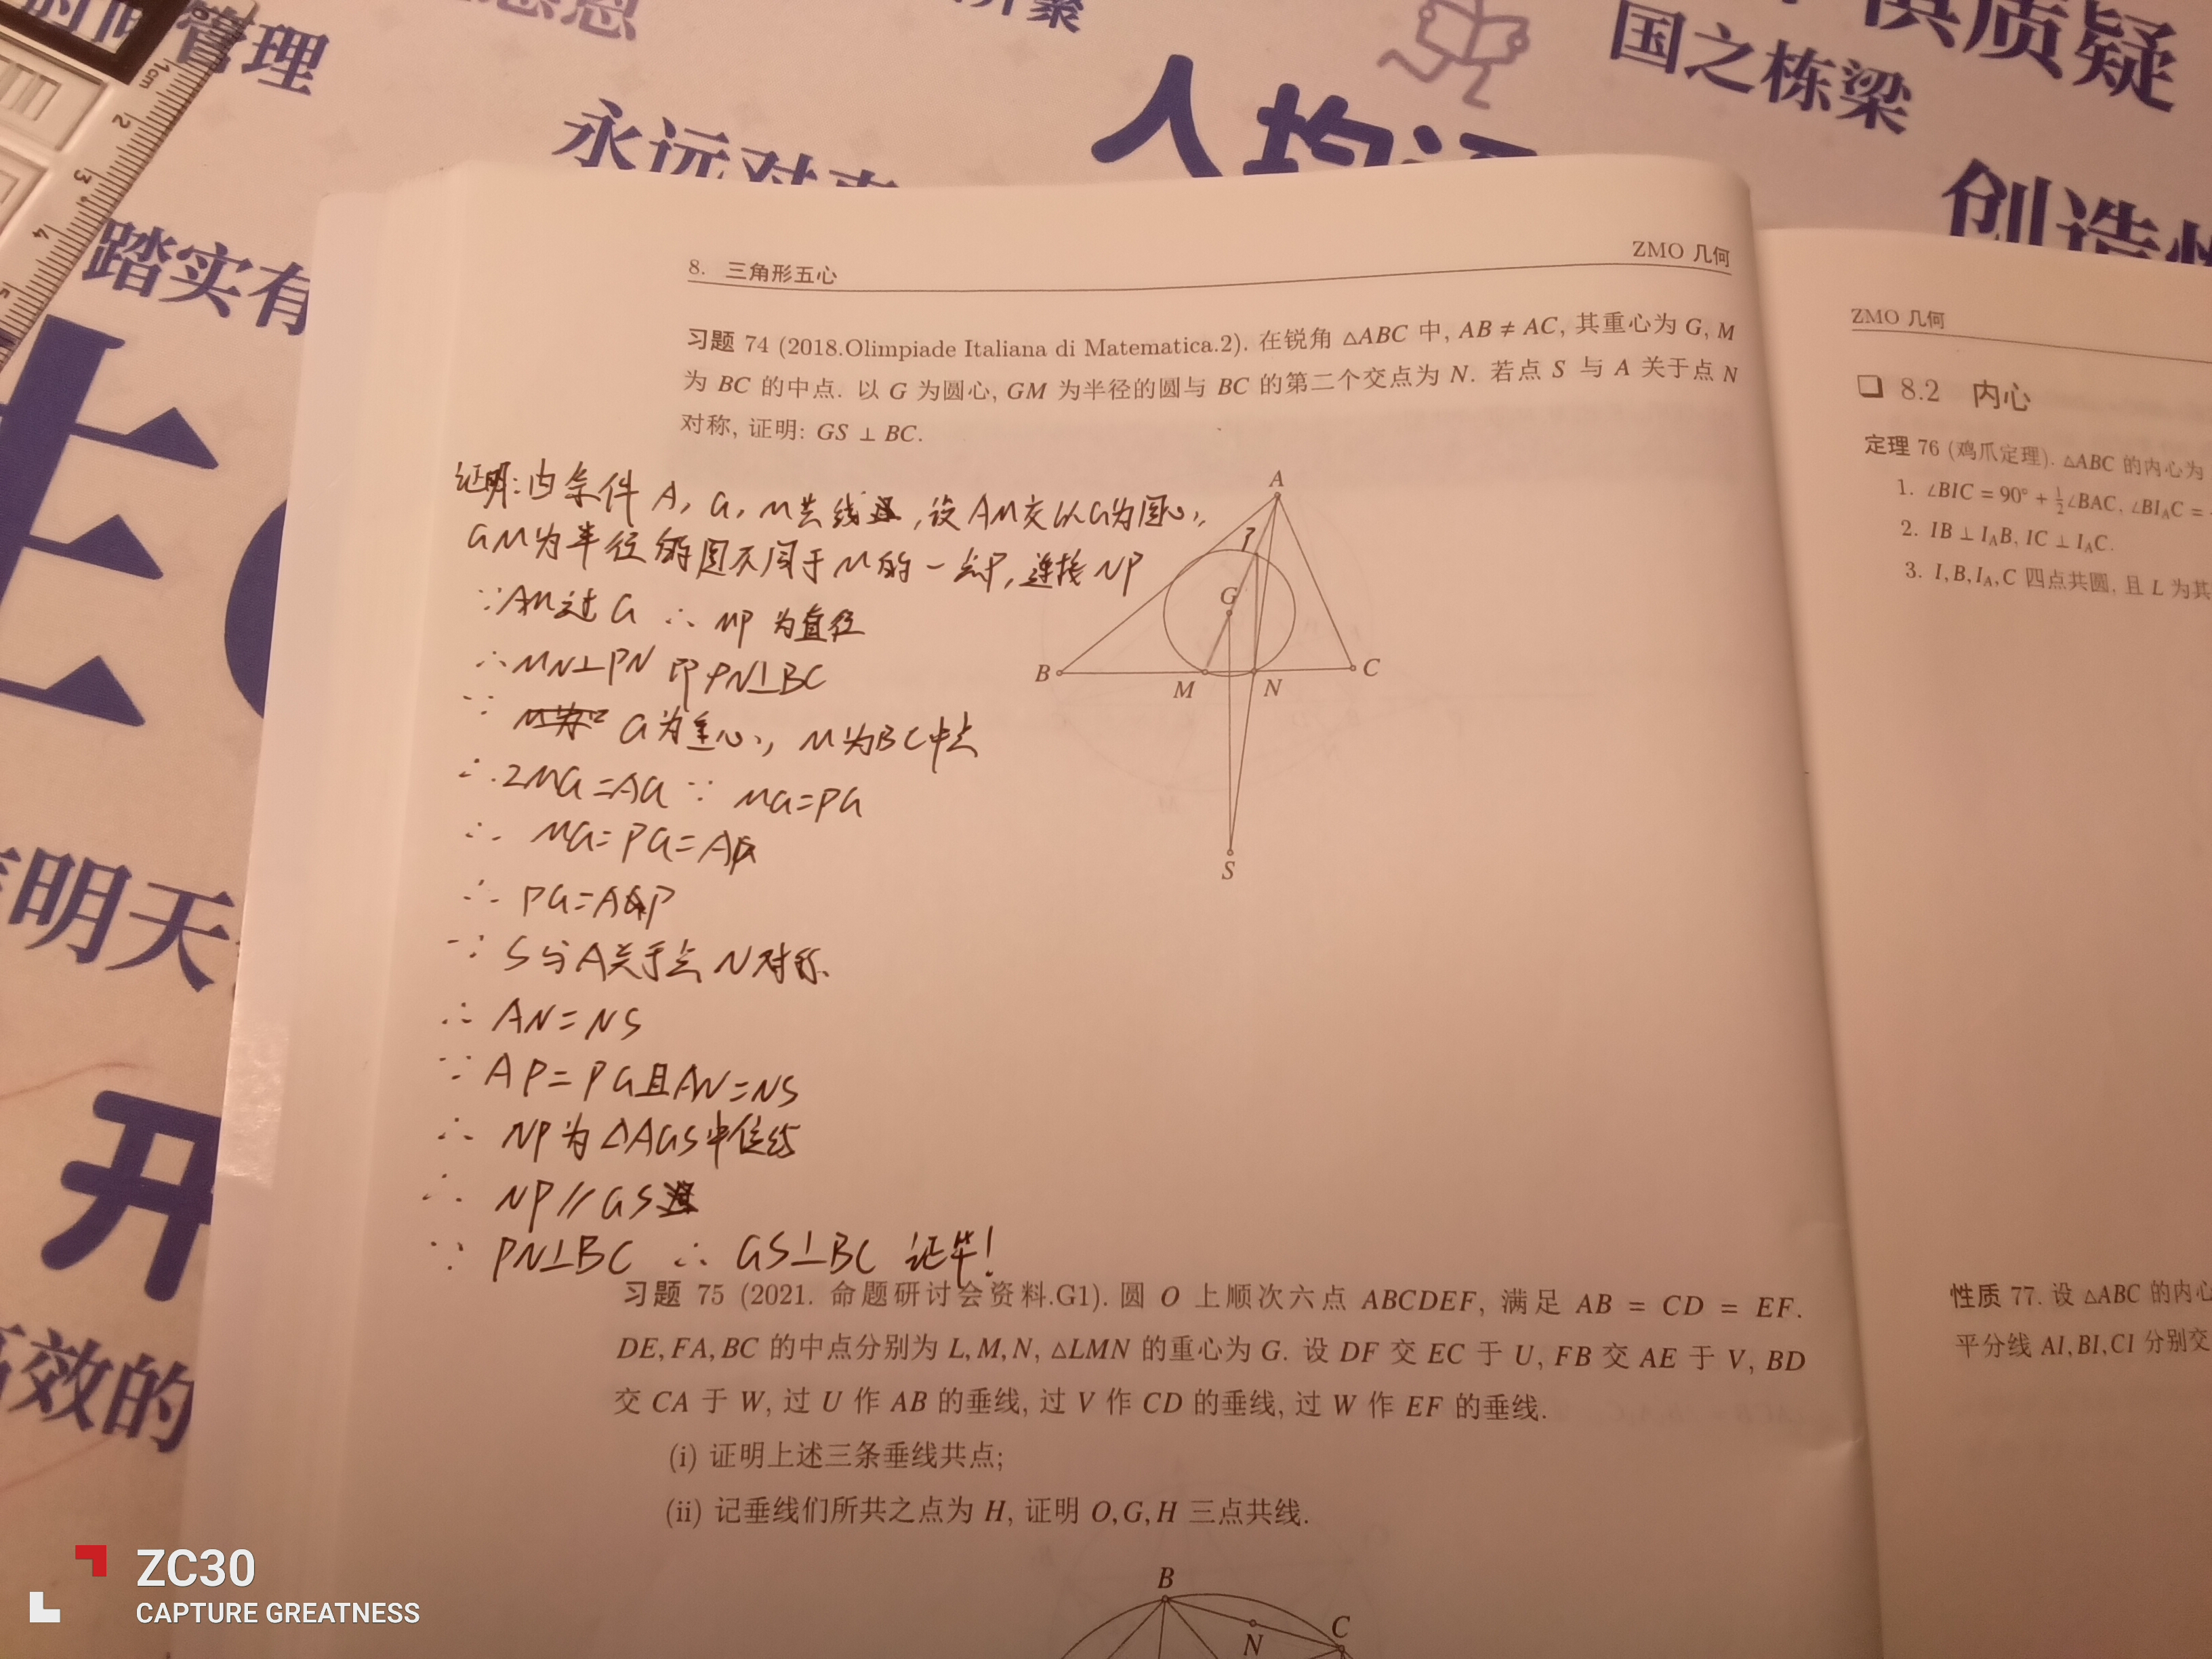 管理
国之栋梁
质疑
永远对
人均
创造性
踏实有
1cm
2
3
4
5
明天
开
高效的
8. 三角形五心
ZMO 几何
习题 74 (2018.Olimpiade Italiana di Matematica.2). 在锐角 △ABC 中, AB ≠ AC, 其重心为 G, M
为 BC 的中点. 以 G 为圆心, GM 为半径的圆与 BC 的第二个交点为 N. 若点 S 与 A 关于点 N
对称, 证明: GS ⊥ BC.
证明:由条件 A, G, M共线,设AM交以G为圆心,
GM为半径的圆不同于M的一点P,连接NP
∵AM过G ∴ MP为直径
∴MN⊥PN 即PN⊥BC
∵ G为重心, M为BC中点
∴2MG=AG ∵ MG=PG
∴ MG=PG=AP
∴ PG=AP
∵ S与A关于点N对称
∴ AN=NS
∵ AP=PG且AN=NS
∴ NP为△AGS中位线
∴ NP//GS
∵ PN⊥BC ∴ GS⊥BC 证毕!
A
P
G
B
M
N
C
S
习题 75 (2021. 命题研讨会资料.G1). 圆 O 上顺次六点 ABCDEF, 满足 AB = CD = EF.
DE, FA, BC 的中点分别为 L, M, N, △LMN 的重心为 G. 设 DF 交 EC 于 U, FB 交 AE 于 V, BD
交 CA 于 W, 过 U 作 AB 的垂线, 过 V 作 CD 的垂线, 过 W 作 EF 的垂线.
(i) 证明上述三条垂线共点;
(ii) 记垂线们所共之点为 H, 证明 O, G, H 三点共线.
B
N
C
ZMO 几何
8.2 内心
定理 76 (鸡爪定理). △ABC 的内心为
1. ∠BIC = 90° + ½∠BAC, ∠BI_AC =
2. IB ⊥ I_AB, IC ⊥ I_AC.
3. I, B, I_A, C 四点共圆, 且 L 为其
性质 77. 设 △ABC 的内心
平分线 AI, BI, CI 分别交
ZC30
CAPTURE GREATNESS